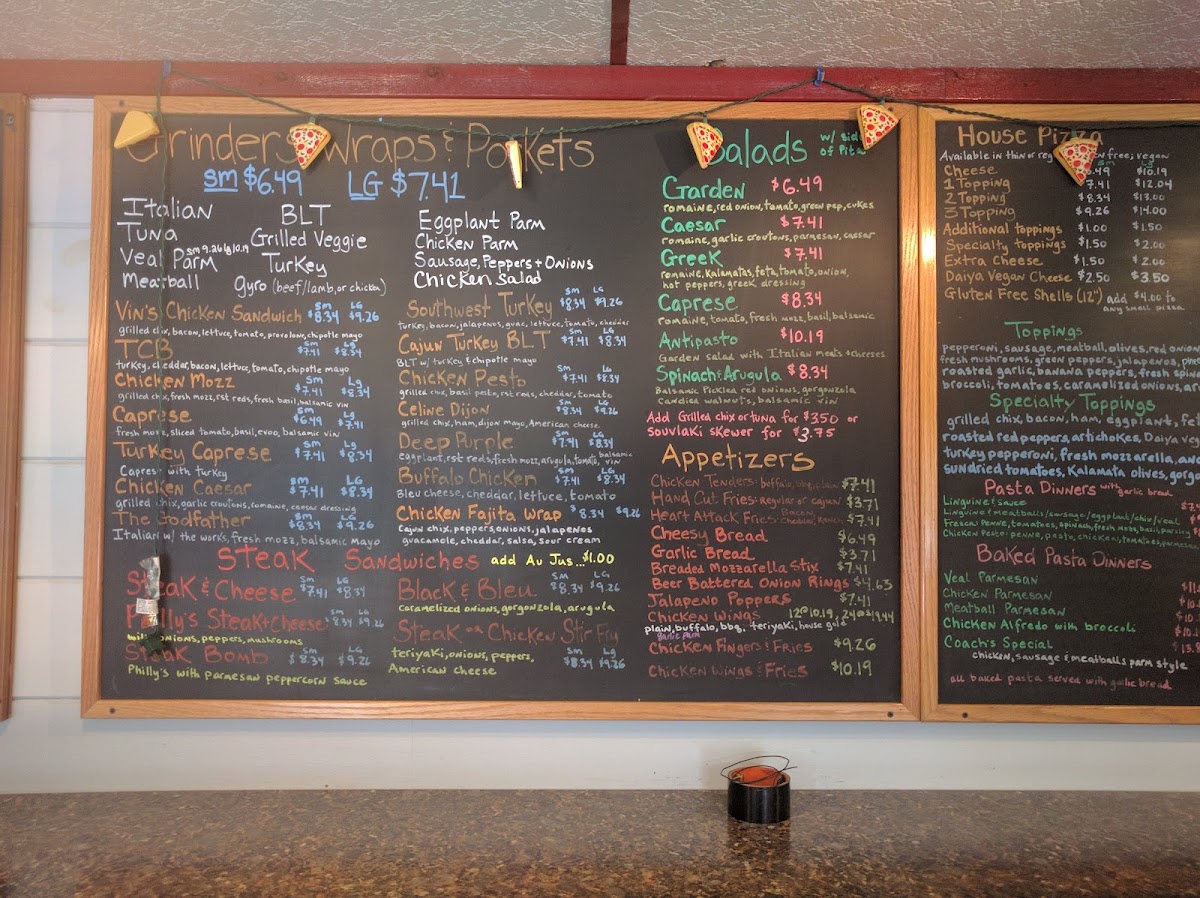 Grinders, Wraps & Pockets
sm $6.49 LG $7.41
Italian BLT
Tuna Grilled Veggie
Veal Parm sm 9.26 lg 10.19 Turkey
Meatball gyro (beef/lamb, or chicken)
Eggplant Parm
Chicken Parm
Sausage, Peppers + Onions
Chicken Salad
Vin's Chicken Sandwich sm $8.34 LG $9.26
grilled chix, bacon, lettuce, tomato, provolone, chipotle mayo
TCB sm $7.41 Lg $8.34
turkey, cheddar, bacon, lettuce, tomato, chipotle mayo
Chicken Mozz sm $7.41 Lg $8.34
grilled chix, fresh mozz, rst reds, fresh basil, balsamic vin
Caprese sm $6.49 Lg $7.41
fresh mozz, sliced tomato, basil, evoo, balsamic vin
Turkey Caprese sm $7.41 Lg $8.34
Caprese with turkey
Chicken Caesar sm $7.41 LG $8.34
grilled chix, garlic croutons, romaine, caesar dressing
The Godfather sm $8.34 LG $9.26
Italian w/ the works, fresh mozz, balsamic mayo
Southwest Turkey sm $8.34 LG $9.26
turkey, bacon, jalapenos, guac, lettuce, tomato, cheddar
Cajun Turkey BLT sm $7.41 LG $8.34
BLT w/ turkey & chipotle mayo
Chicken Pesto sm $7.41 LG $8.34
grilled chix, basil pesto, rst reds, cheddar, tomato
Celine Dijon sm $8.34 LG $9.26
grilled chix, ham, dijon mayo, American cheese
Deep Purple sm $7.41 LG $8.34
eggplant, rst reds, fresh mozz, arugula, tomato, balsamic vin
Buffalo Chicken sm $7.41 LG $8.34
Bleu cheese, cheddar, lettuce, tomato
Chicken Fajita Wrap $8.34 $9.26
Cajun chix, peppers, onions, jalapenos
guacamole, cheddar, salsa, sour cream
Steak Sandwiches add Au Jus...$1.00
Steak & Cheese sm $7.41 LG $8.34
Philly's Steak & Cheese sm 8.34 LG $9.26
with onions, peppers, mushrooms
Steak Bomb sm $8.34 LG $9.26
Philly's with parmesan peppercorn sauce
Black & Bleu sm $8.34 LG $9.26
caramelized onions, gorgonzola, arugula
Steak or Chicken Stir Fry sm $8.34 Lg $9.26
teriyaki, onions, peppers,
American cheese
Salads w/ side of Pita
Garden $6.49
romaine, red onion, tomato, green pep, cukes
Caesar $7.41
romaine, garlic croutons, parmesan, caesar
Greek $7.41
romaine, Kalamatas, feta, tomato, onion,
hot peppers, greek dressing
Caprese $8.34
romaine, tomato, fresh mozz, basil, balsamic
Antipasto $10.19
Garden salad with Italian meats & cheeses
Spinach & Arugula $8.34
Balsamic Pickled red onions, gorgonzola
candied walnuts, balsamic vin
Add Grilled chix or tuna for $3.50 or
souvlaki skewer for $3.75
Appetizers
Chicken Tenders: buffalo, bbq, plain $7.41
Hand Cut Fries: Regular or cajun $3.71
Heart Attack Fries: Bacon, cheddar, Ranch $7.41
Cheesy Bread $6.49
Garlic Bread $3.71
Breaded Mozzarella Stix $7.41
Beer Battered Onion Rings $4.63
Jalapeno Poppers $7.41
Chicken Wings 12@10.19, 24@
plain, buffalo, bbq, teriyaki, house gold
garlic parm
Chicken Fingers & Fries $9.26
Chicken Wings & Fries $10.19
House Pizza
Available in thin or free; vegan
Cheese $10.19
1 Topping $12.04
2 Topping $8.34 $13.00
3 Topping $9.26 $14.00
Additional toppings $1.00 $1.50
Specialty toppings $1.50 $2.00
Extra Cheese $1.50 $2.00
Daiya Vegan Cheese $2.50 $3.50
Gluten Free Shells (12") add $4.00 to
any small pizza
Toppings
pepperoni, sausage, meatball, olives, red onion
fresh mushrooms, green peppers, jalapenos,
roasted garlic, banana peppers, fresh
broccoli, tomatoes, caramelized onions,
Specialty Toppings
grilled chix, bacon, ham, eggplant,
roasted red peppers, artichokes, Daiya
turkey pepperoni, fresh mozzarella,
sundried tomatoes, Kalamata olives,
Pasta Dinners with garlic bread
Linguine & sauce
Linguine & meatballs/sausage/eggplant/chix/veal
Fresca: penne, tomatoes, spinach, fresh mozz, basil,
Chicken Pesto: penne, pesto, chicken, tomatoes,
Baked Pasta Dinners
Veal Parmesan
Chicken Parmesan
Meatball Parmesan
Chicken Alfredo with broccoli
Coach's Special
chicken, sausage & meatballs parm style
all baked pasta served with garlic bread